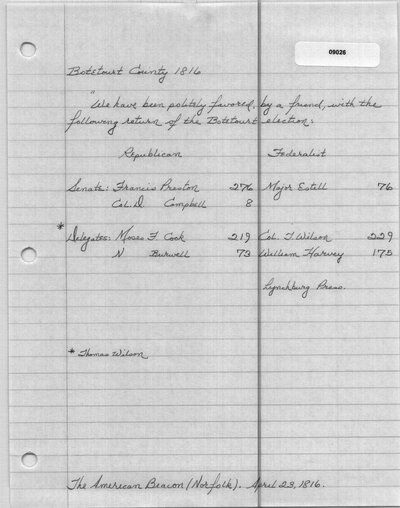 09026
Botetourt County 1816
"We have been politely favored, by a friend, with the
following return of the Botetourt election:
Republican Federalist
Senate: Francis Preston 276 Major Estell 76
Col. D. Campbell 8
* Delegates: Moses F. Cook 219 Col. T. Wilson 229
N Burwell 73 William Harvey 175
Lynchburg Press.
* Thomas Wilson
The American Beacon (Norfolk). April 23, 1816.